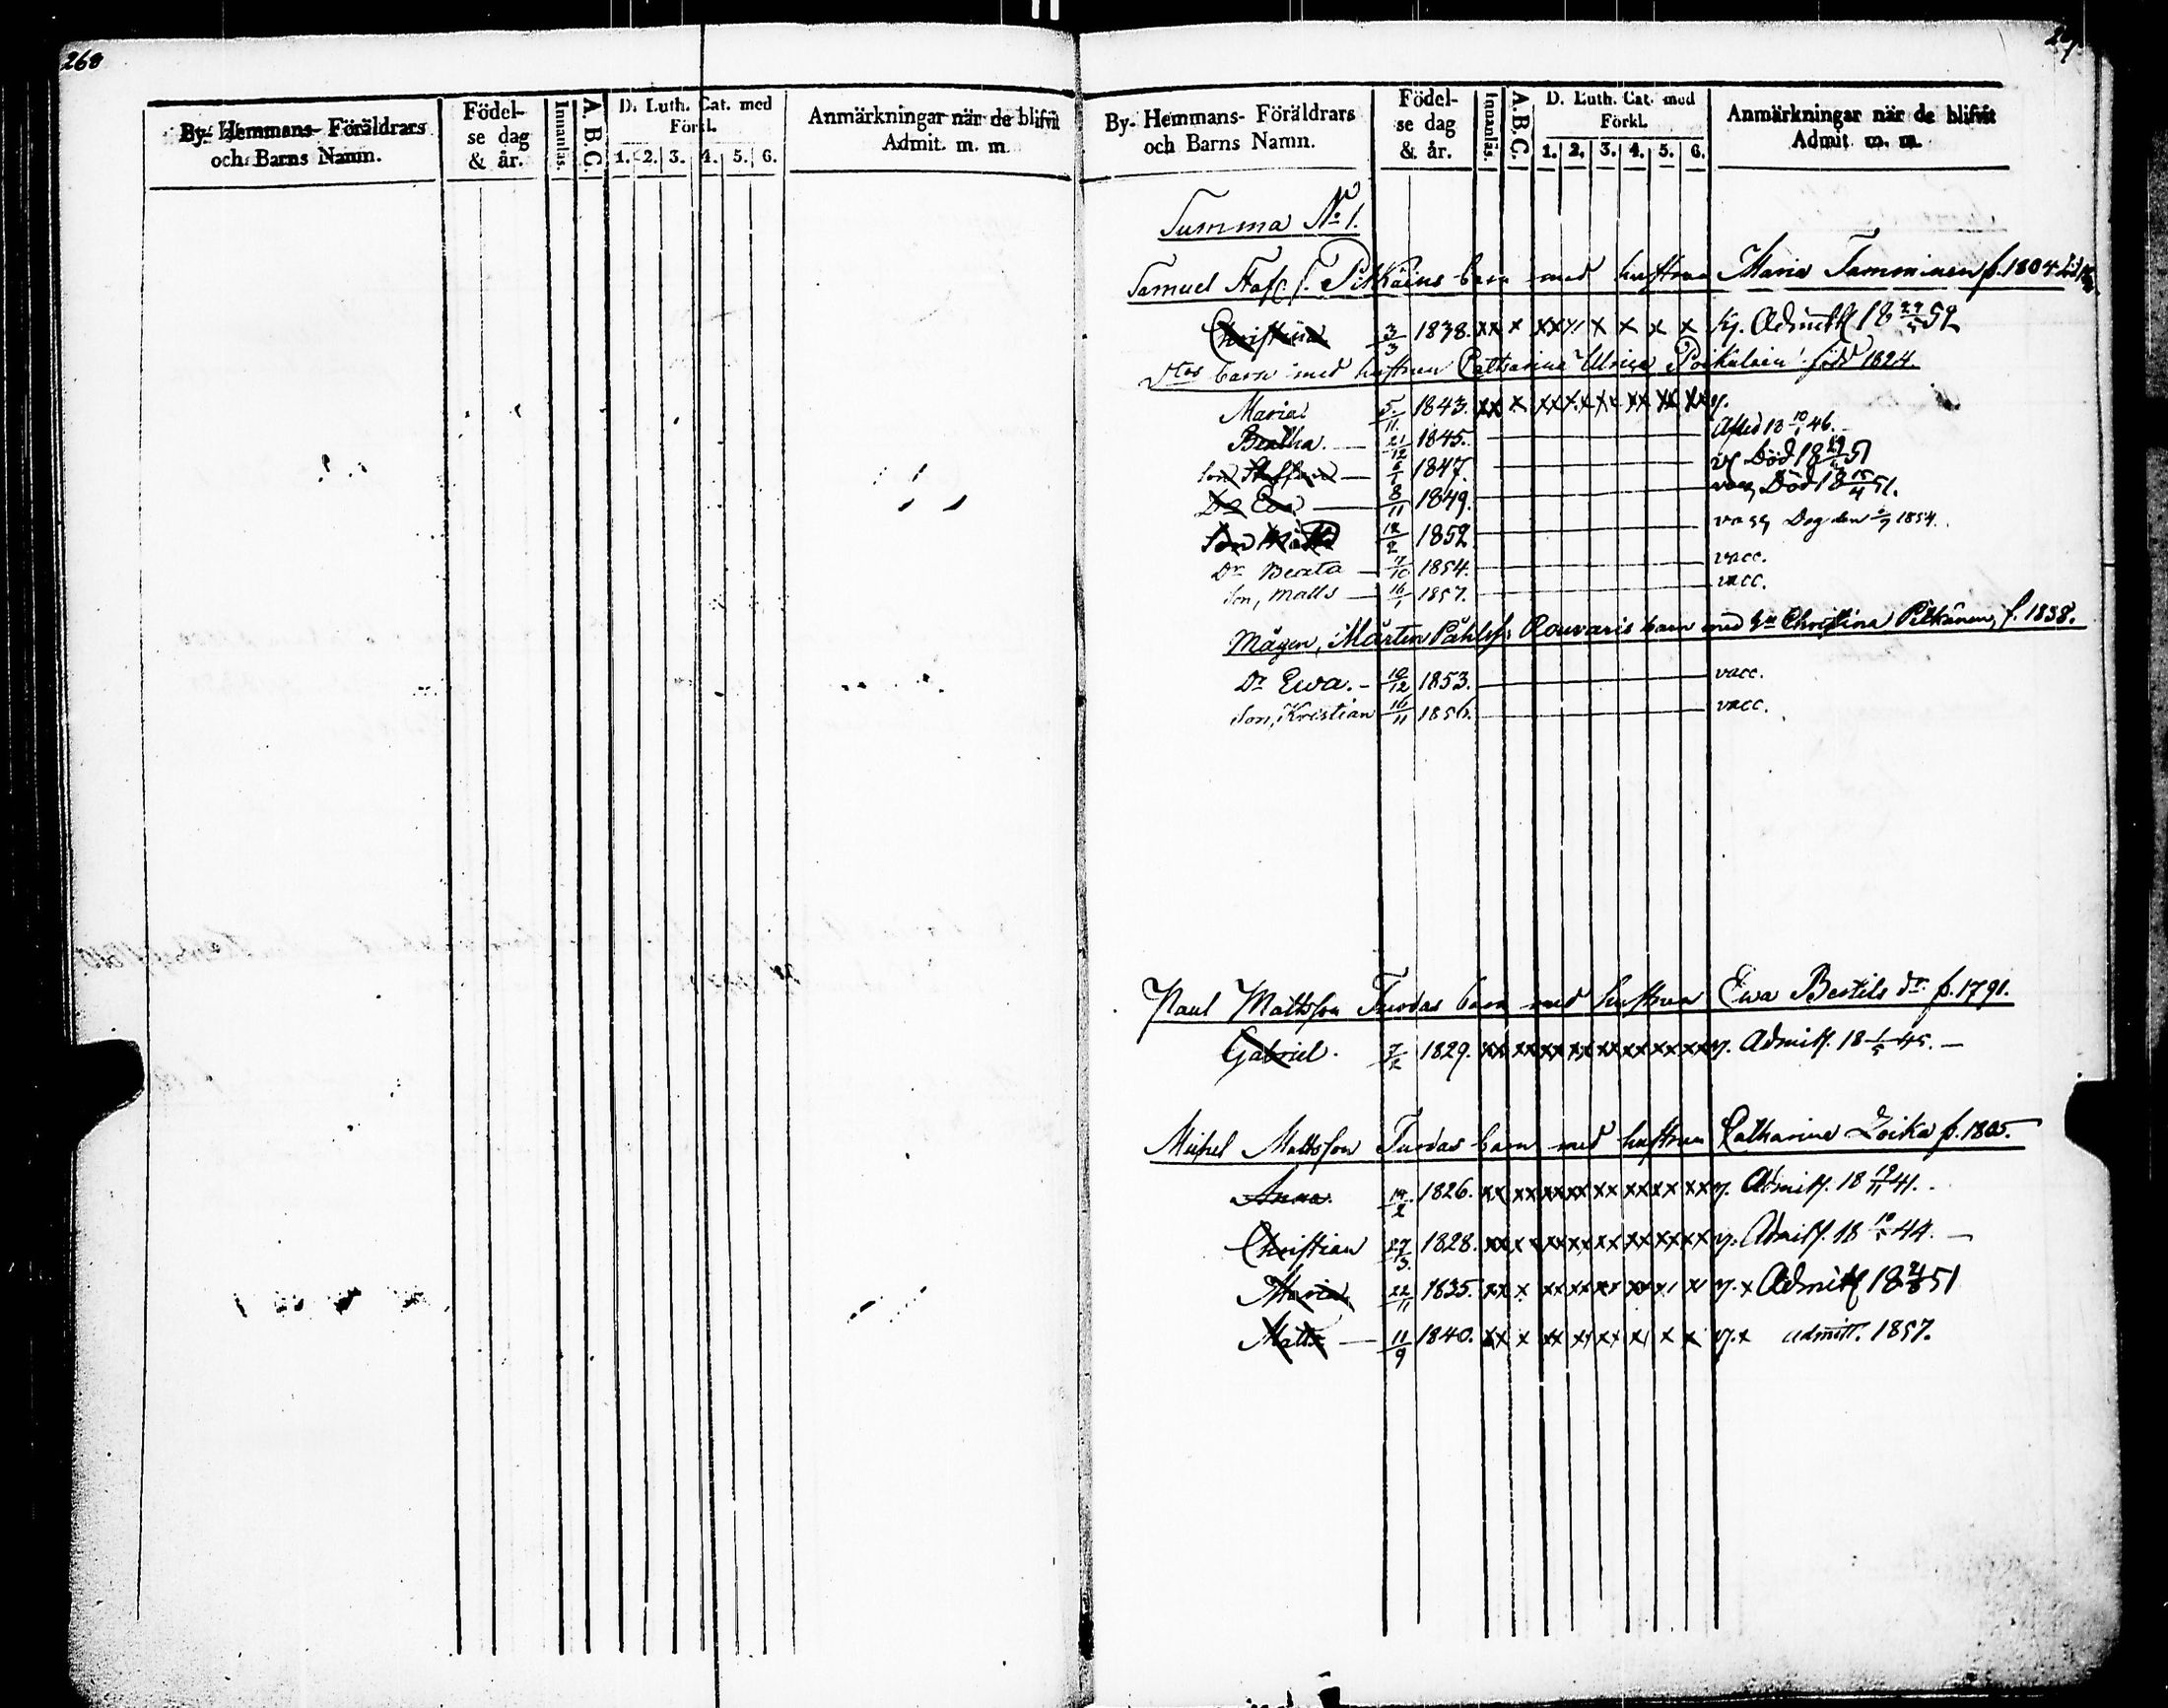 268
By- Hemmans- Föräldrars
och Barns Namn.
Födel-
se dag
& år.
Innanläs.
A. B. C.
D. Luth. Cat. med
Förkl.
1. 2. 3. 4. 5. 6.
Anmärkningar när de blifvit
Admit. m. m.
By- Hemmans- Föräldrars
och Barns Namn.
Födel-
se dag
& år.
Innanläs.
A. B. C.
D. Luth. Cat. med
Förkl.
1. 2. 3. 4. 5. 6.
Anmärkningar när de blifvit
Admit. m. m.
Summa No 1.
Samuel Pitkäins barn med hustrun Maria Tamminen f. 1804
Christina 3/3 1838. xx x x x x x Admitt
barn med hustrun Catharina Ulrica Poikolain född 1824.
Maria 5/11 1843. xx x xx x x x x xx xx xx
Beatha 21/12 1845. Afled 18 10/1 46.
Son Staffan 6/1 1847. Död 18 51
Dr Eva 8/11 1849. Död 18 15/4 51.
Son Matts 12/2 1852 Dog den 1854.
Dr Beata 7/10 1854. vacc.
Son, Matts 16/1 1857. vacc.
Mågen, Mårten Påhlss: Rouvaris barn med Christina Pitkänen, f. 1838.
Dr Ewa. 10/12 1853. vacc.
Son, Kristian 16/11 1856. vacc.
Paul Mattsson barn med hustrun Ewa Bertils dr f. 1791.
Gabriel. 7/2 1829. xx xx xx xx xx xx xx xx Admitt. 18 1/5 45.
Michel Mattsson barn med hustrun Catharina Loika f. 1805.
Anna. 14/2 1826. xx xx xx xx xx xx xx xx Admitt. 18 41.
Christian 27/3 1828. xx x xx xx xx xx xx xx Admitt. 18 44.
Maria 22/11 1835. xx x xx xx xx xx x x Admitt 18 51
Matts 11/9 1840. xx x xx xx xx x x x admitt. 1857.